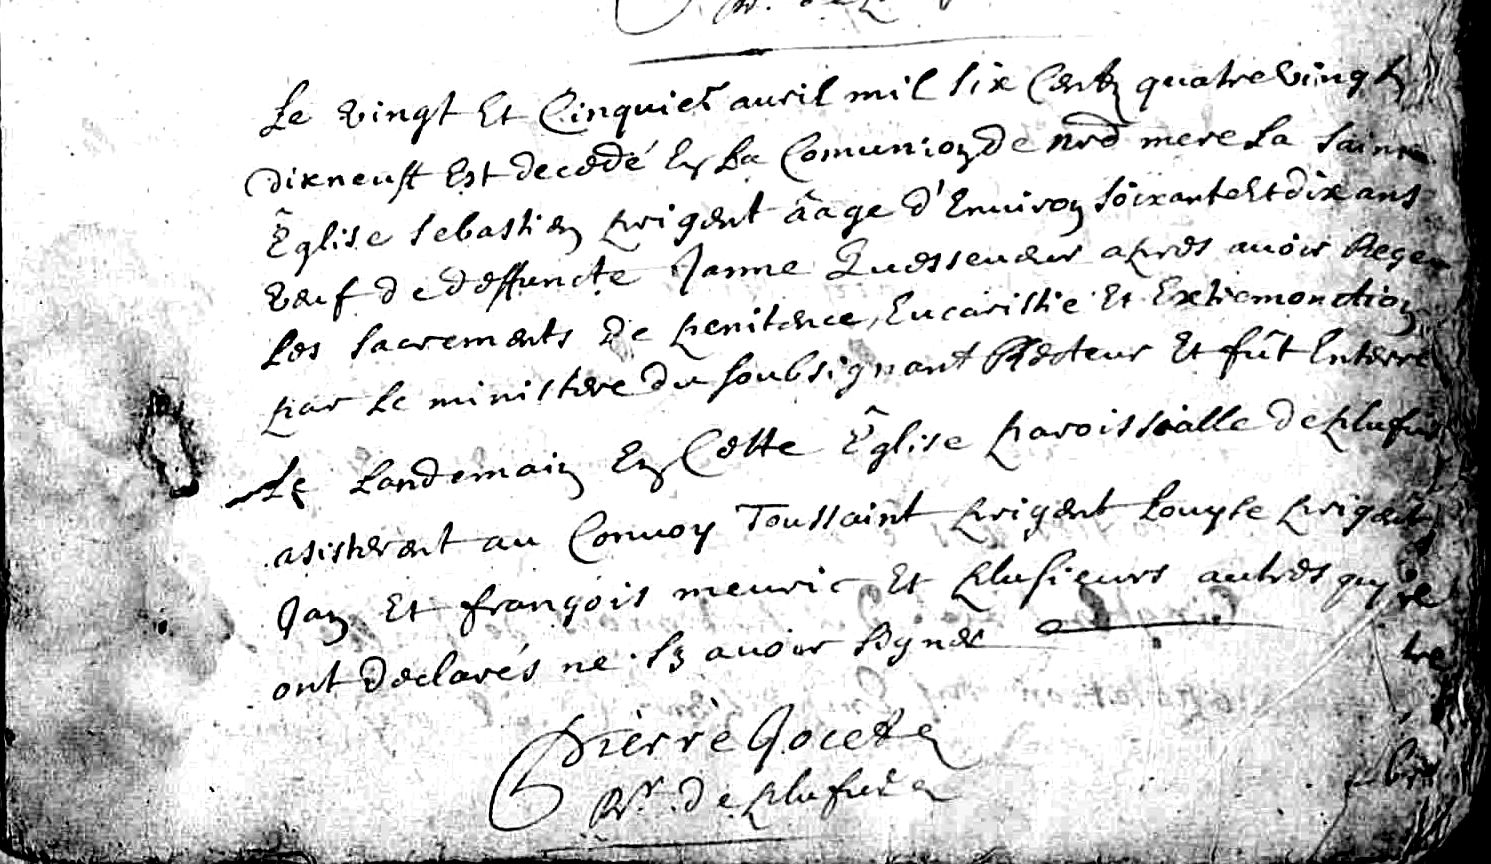 Le vingt Et Cinquieͬ auril mil six Centz quatre vingt
dixneuft Est decedé En La Comunion de nrẽ mere La Sainte
Église Sebastien prigent âage d'Enuiron soixante Et dix ans
veuf de deffuncte Janne Quesseueur apres auoir Reçeu
Les Sacrements de penitence, Eucaristie Et Extremonction
par Le ministere du soubsignant Recteur Et fût Enterré
Le Landemain En Cette Église paroissialle de plufur
asisterent au Conuoy Toussaint prigent Louyse prigent
Jan Et françois meuric Et plusieurs autres quy
ont declarés ne sç auoir signer
Pierre Jocet
Rʳ. de plufur